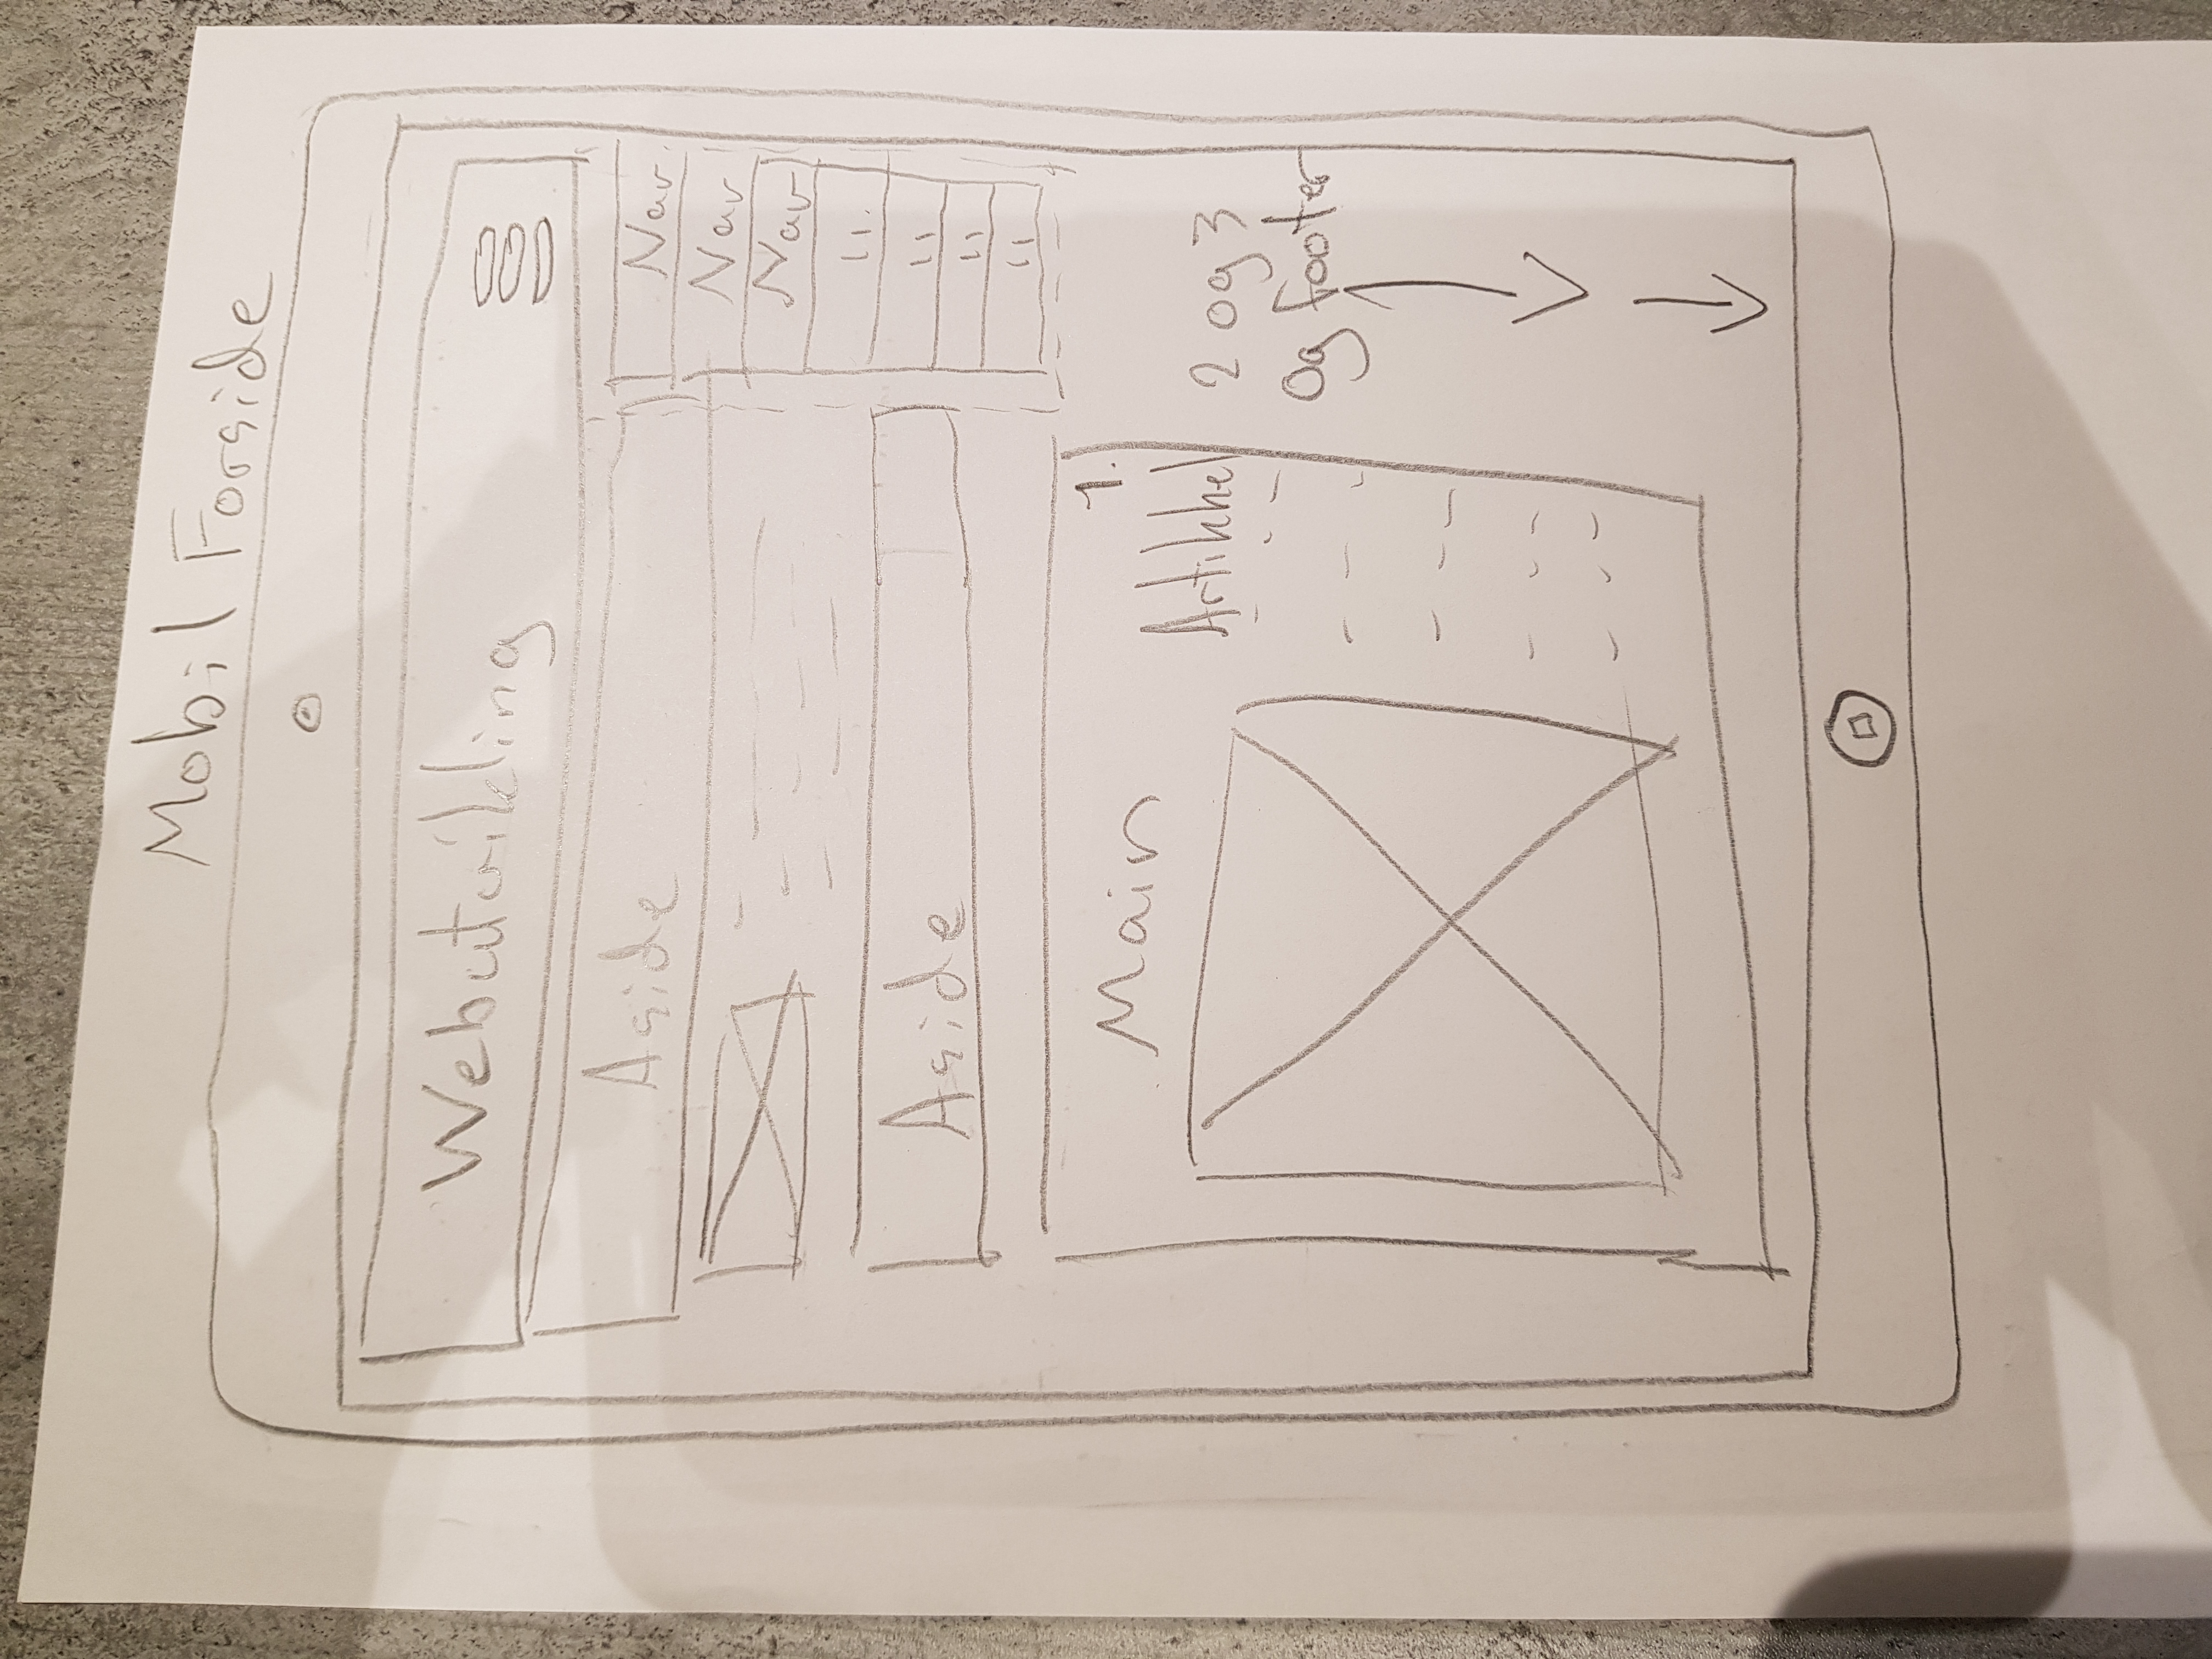 Mobil Forside
Webutvikling
Aside
Nav
Nav
Nav
11
11
11
11
Aside
Main
1.
Artikkel
2 og 3
Og footer